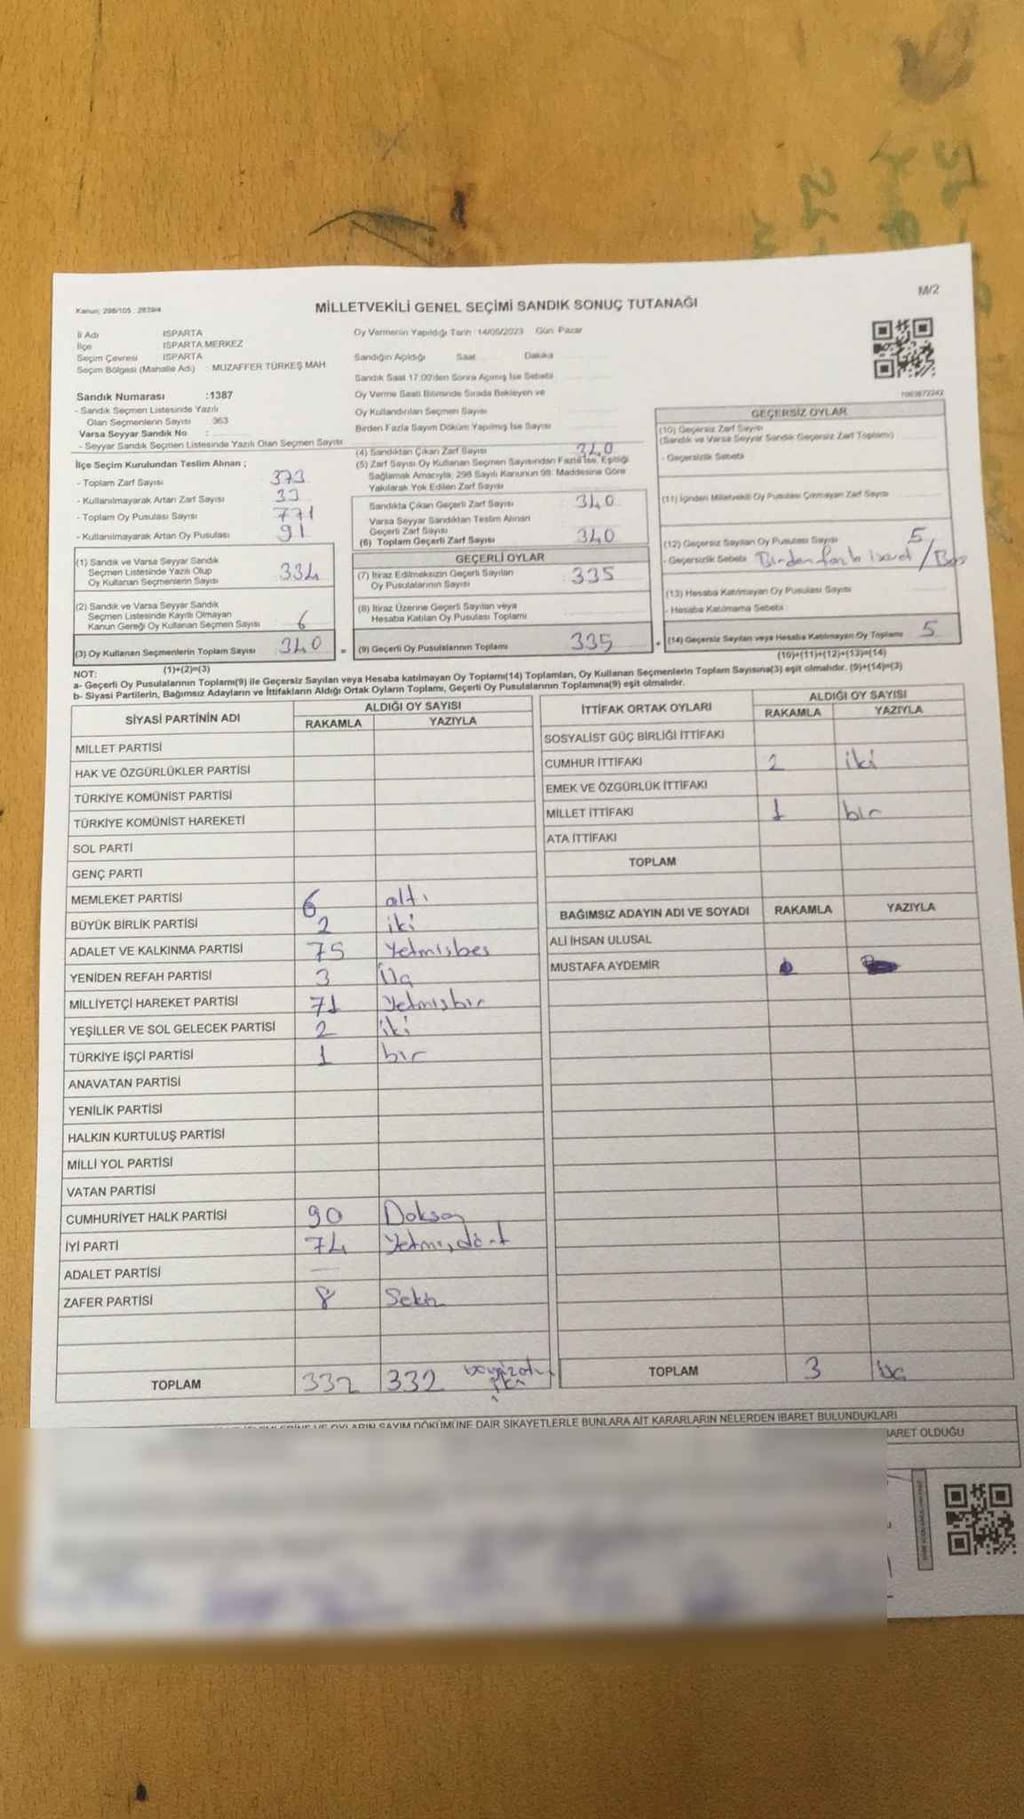 M/2
Kanun: 298/105 : 2839/4
MİLLETVEKİLİ GENEL SEÇİMİ SANDIK SONUÇ TUTANAĞI
İl Adı ISPARTA
İlçe ISPARTA MERKEZ
Seçim Çevresi ISPARTA
Seçim Bölgesi (Mahalle Adı) : MUZAFFER TÜRKEŞ MAH
Oy Vermenin Yapıldığı Tarih : 14/05/2023 Gün Pazar
Sandığın Açıldığı Saat Dakika
Sandık Saat 17.00'den Sonra Açılmış İse Sebebi
Oy Verme Saati Bitiminde Sırada Bekleyen ve
Oy Kullandırılan Seçmen Sayısı
Birden Fazla Sayım Döküm Yapılmış İse Sayısı
Sandık Numarası :1387
- Sandık Seçmen Listesinde Yazılı
Olan Seçmenlerin Sayısı 363
Varsa Seyyar Sandık No :
- Seyyar Sandık Seçmen Listesinde Yazılı Olan Seçmen Sayısı
İlçe Seçim Kurulundan Teslim Alınan ;
- Toplam Zarf Sayısı 373
- Kullanılmayarak Artan Zarf Sayısı 33
- Toplam Oy Pusulası Sayısı 771
- Kullanılmayarak Artan Oy Pusulası 91
(1) Sandık ve Varsa Seyyar Sandık
Seçmen Listesinde Yazılı Olup
Oy Kullanan Seçmenlerin Sayısı 334
(2) Sandık ve Varsa Seyyar Sandık
Seçmen Listesinde Kayıtlı Olmayan
Kanun Gereği Oy Kullanan Seçmen Sayısı 6
(3) Oy Kullanan Seçmenlerin Toplam Sayısı 340
(1)+(2)=(3)
(4) Sandıktan Çıkan Zarf Sayısı 340
(5) Zarf Sayısı Oy Kullanan Seçmen Sayısından Fazla İse, Eşitliği
Sağlamak Amacıyla, 298 Sayılı Kanunun 98. Maddesine Göre
Yakılarak Yok Edilen Zarf Sayısı
Sandıkta Çıkan Geçerli Zarf Sayısı 340
Varsa Seyyar Sandıktan Teslim Alınan
Geçerli Zarf Sayısı
(6) Toplam Geçerli Zarf Sayısı 340
GEÇERLİ OYLAR
(7) İtiraz Edilmeksizin Geçerli Sayılan
Oy Pusulalarının Sayısı 335
(8) İtiraz Üzerine Geçerli Sayılan veya
Hesaba Katılan Oy Pusulası Toplamı
= (9) Geçerli Oy Pusulalarının Toplamı 335
GEÇERSİZ OYLAR
(10) Geçersiz Zarf Sayısı
(Sandık ve Varsa Seyyar Sandık Geçersiz Zarf Toplamı)
- Geçersizlik Sebebi
(11) İçinden Milletvekili Oy Pusulası Çıkmayan Zarf Sayısı
(12) Geçersiz Sayılan Oy Pusulası Sayısı 5
- Geçersizlik Sebebi Birden fazla işaret / Boş
(13) Hesaba Katılmayan Oy Pusulası Sayısı
- Hesaba Katılmama Sebebi
+ (14) Geçersiz Sayılan veya Hesaba Katılmayan Oy Toplamı 5
(10)+(11)+(12)+(13)=(14)
NOT:
a- Geçerli Oy Pusulalarının Toplamı(9) ile Geçersiz Sayılan veya Hesaba katılmayan Oy Toplamı(14) Toplamları, Oy Kullanan Seçmenlerin Toplam Sayısına(3) eşit olmalıdır. (9)+(14)=(3)
b- Siyasi Partilerin, Bağımsız Adayların ve İttifakların Aldığı Ortak Oyların Toplamı, Geçerli Oy Pusulalarının Toplamına(9) eşit olmalıdır.
SİYASİ PARTİNİN ADI ALDIĞI OY SAYISI
RAKAMLA YAZIYLA
MİLLET PARTİSİ
HAK VE ÖZGÜRLÜKLER PARTİSİ
TÜRKİYE KOMÜNİST PARTİSİ
TÜRKİYE KOMÜNİST HAREKETİ
SOL PARTİ
GENÇ PARTİ
MEMLEKET PARTİSİ 6 altı
BÜYÜK BİRLİK PARTİSİ 2 iki
ADALET VE KALKINMA PARTİSİ 75 Yetmişbeş
YENİDEN REFAH PARTİSİ 3 Üç
MİLLİYETÇİ HAREKET PARTİSİ 71 Yetmişbir
YEŞİLLER VE SOL GELECEK PARTİSİ 2 iki
TÜRKİYE İŞÇİ PARTİSİ 1 bir
ANAVATAN PARTİSİ
YENİLİK PARTİSİ
HALKIN KURTULUŞ PARTİSİ
MİLLİ YOL PARTİSİ
VATAN PARTİSİ
CUMHURİYET HALK PARTİSİ 90 Doksan
İYİ PARTİ 74 Yetmişdört
ADALET PARTİSİ —
ZAFER PARTİSİ 8 Sekiz
TOPLAM 332 332
İTTİFAK ORTAK OYLARI ALDIĞI OY SAYISI
RAKAMLA YAZIYLA
SOSYALİST GÜÇ BİRLİĞİ İTTİFAKI
CUMHUR İTTİFAKI 2 iki
EMEK VE ÖZGÜRLÜK İTTİFAKI
MİLLET İTTİFAKI 1 bir
ATA İTTİFAKI
TOPLAM
BAĞIMSIZ ADAYIN ADI VE SOYADI RAKAMLA YAZIYLA
ALİ İHSAN ULUSAL
MUSTAFA AYDEMİR
TOPLAM 3 üç
OYLARIN SAYIM DÖKÜMÜNE DAİR ŞİKAYETLERLE BUNLARA AİT KARARLARIN NELERDEN İBARET BULUNDUKLARI
İBARET OLDUĞU